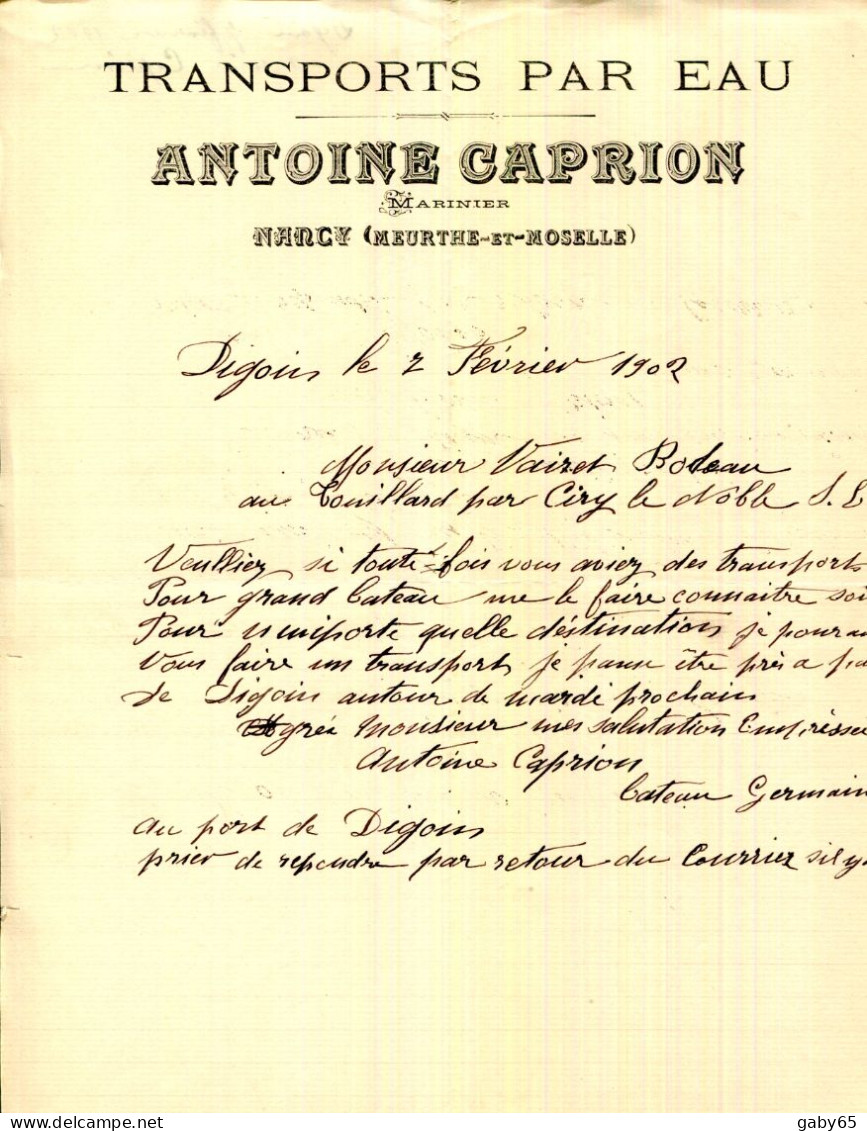 TRANSPORTS PAR EAU
ANTOINE CAPRION
MARINIER
NANCY (MEURTHE-ET-MOSELLE)
Digoin le 2 Février 1902
Monsieur Vairet Bodeau
au Touillard par Ciry le Noble S. L
Veulliez si toute fois vous aviez des transport
Pour grand bateau me le faire connaitre soi
Pour n'miporte quelle déstination je pourai
Vous faire un transport, je panse être près a pa
de Digoin autour de mardi prochain
Agrée monsieur mes salutation Emprèssee
Antoine Caprion
bateau Germain
au port de Digoin
prier de repondre par retour du Courrier sil y
delcampe.net
gaby65